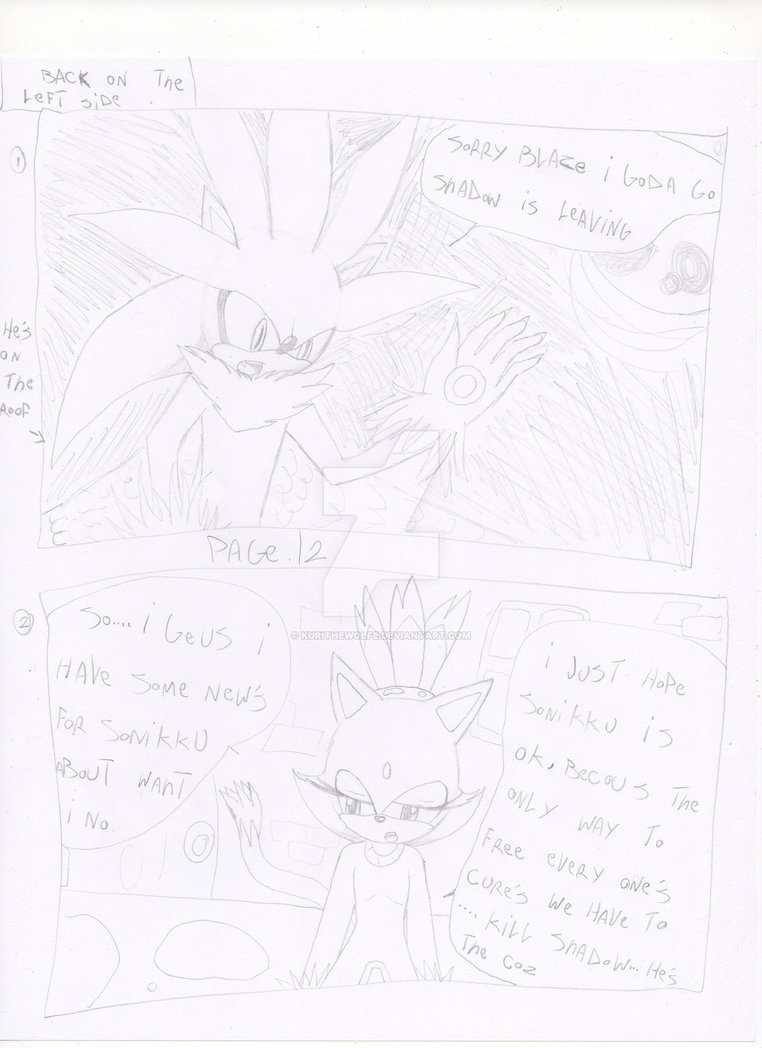 BACK ON The
LeFT SiDe
1
SORRY BLAZe i GODA GO
ShADOW iS LeAViNG
He's
ON
The
ROOF
PAGe.12
2
So.... i Geus i
HAVe Some New's
FOR SONiKKU
ABOUT WANT
i No
© KURITHEWOLFE.DEVIANTART.COM
i JUST HoPe
SONiKKU iS
OK, BecouS The
ONLY WAY To
FRee eveRY ONe's
CURe's We HAVe To
.... KiLL ShADOW... He's
The Coz